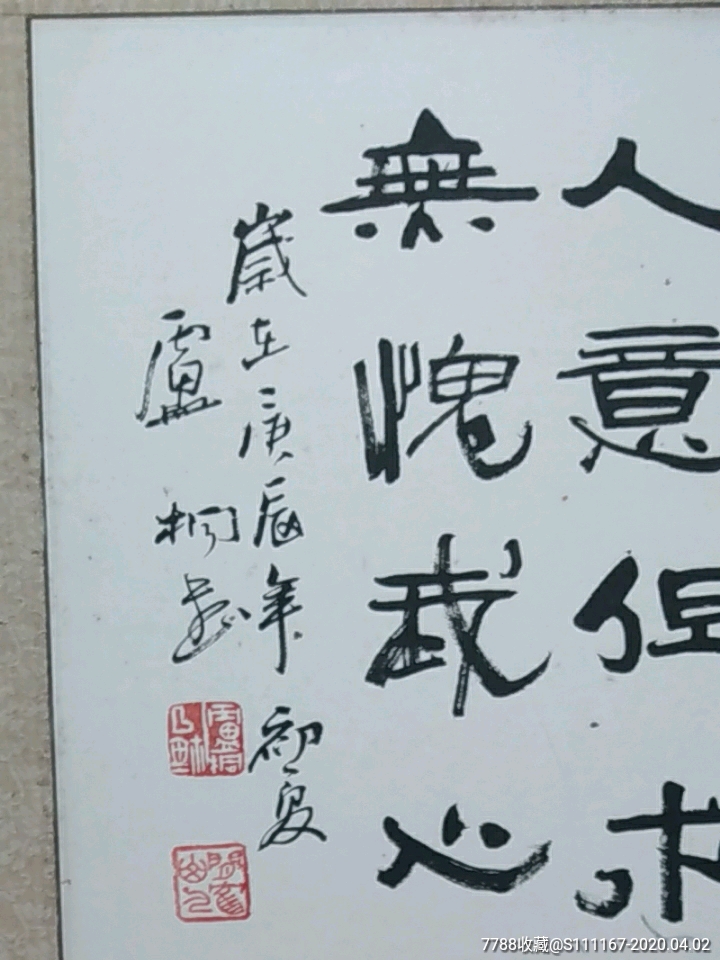 人意但求
無愧我心
歲在庚辰年初夏
盧桐書
7788收藏@S111167-2020.04.02